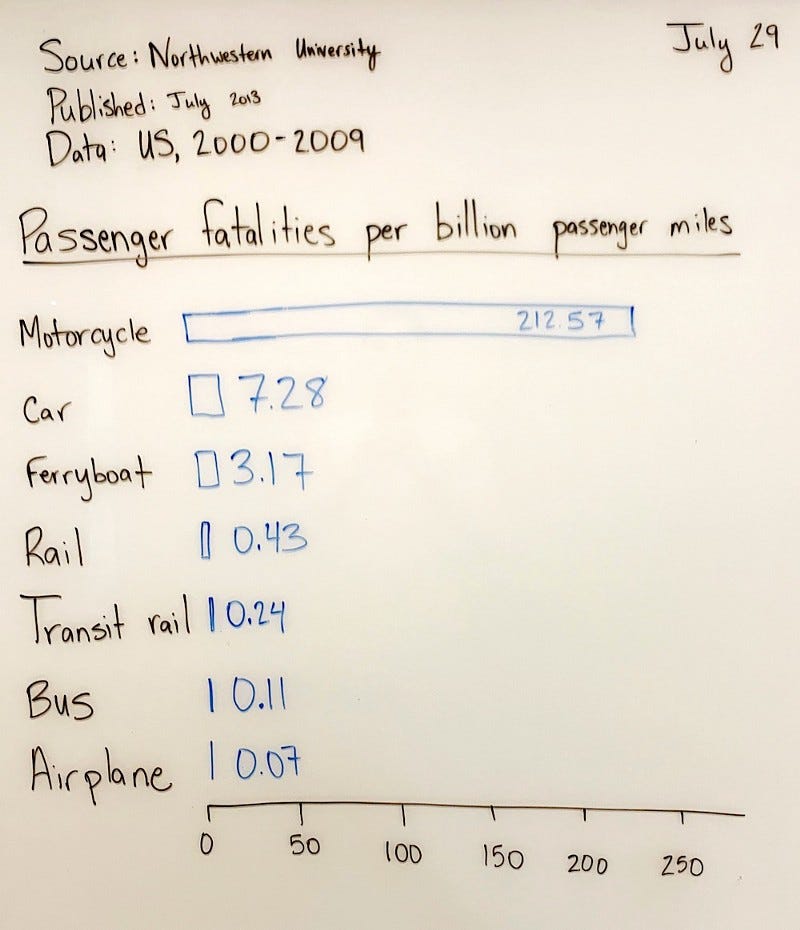 July 29
Source: Northwestern University
Published: July 2013
Data: US, 2000-2009
Passenger fatalities per billion passenger miles
Motorcycle 212.57
Car 7.28
Ferryboat 3.17
Rail 0.43
Transit rail 0.24
Bus 0.11
Airplane 0.07
0 50 100 150 200 250